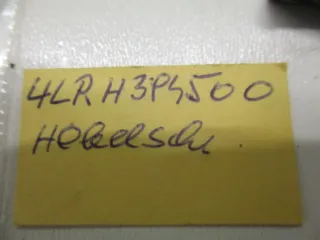 4LR H3P4500
Hebelsch.